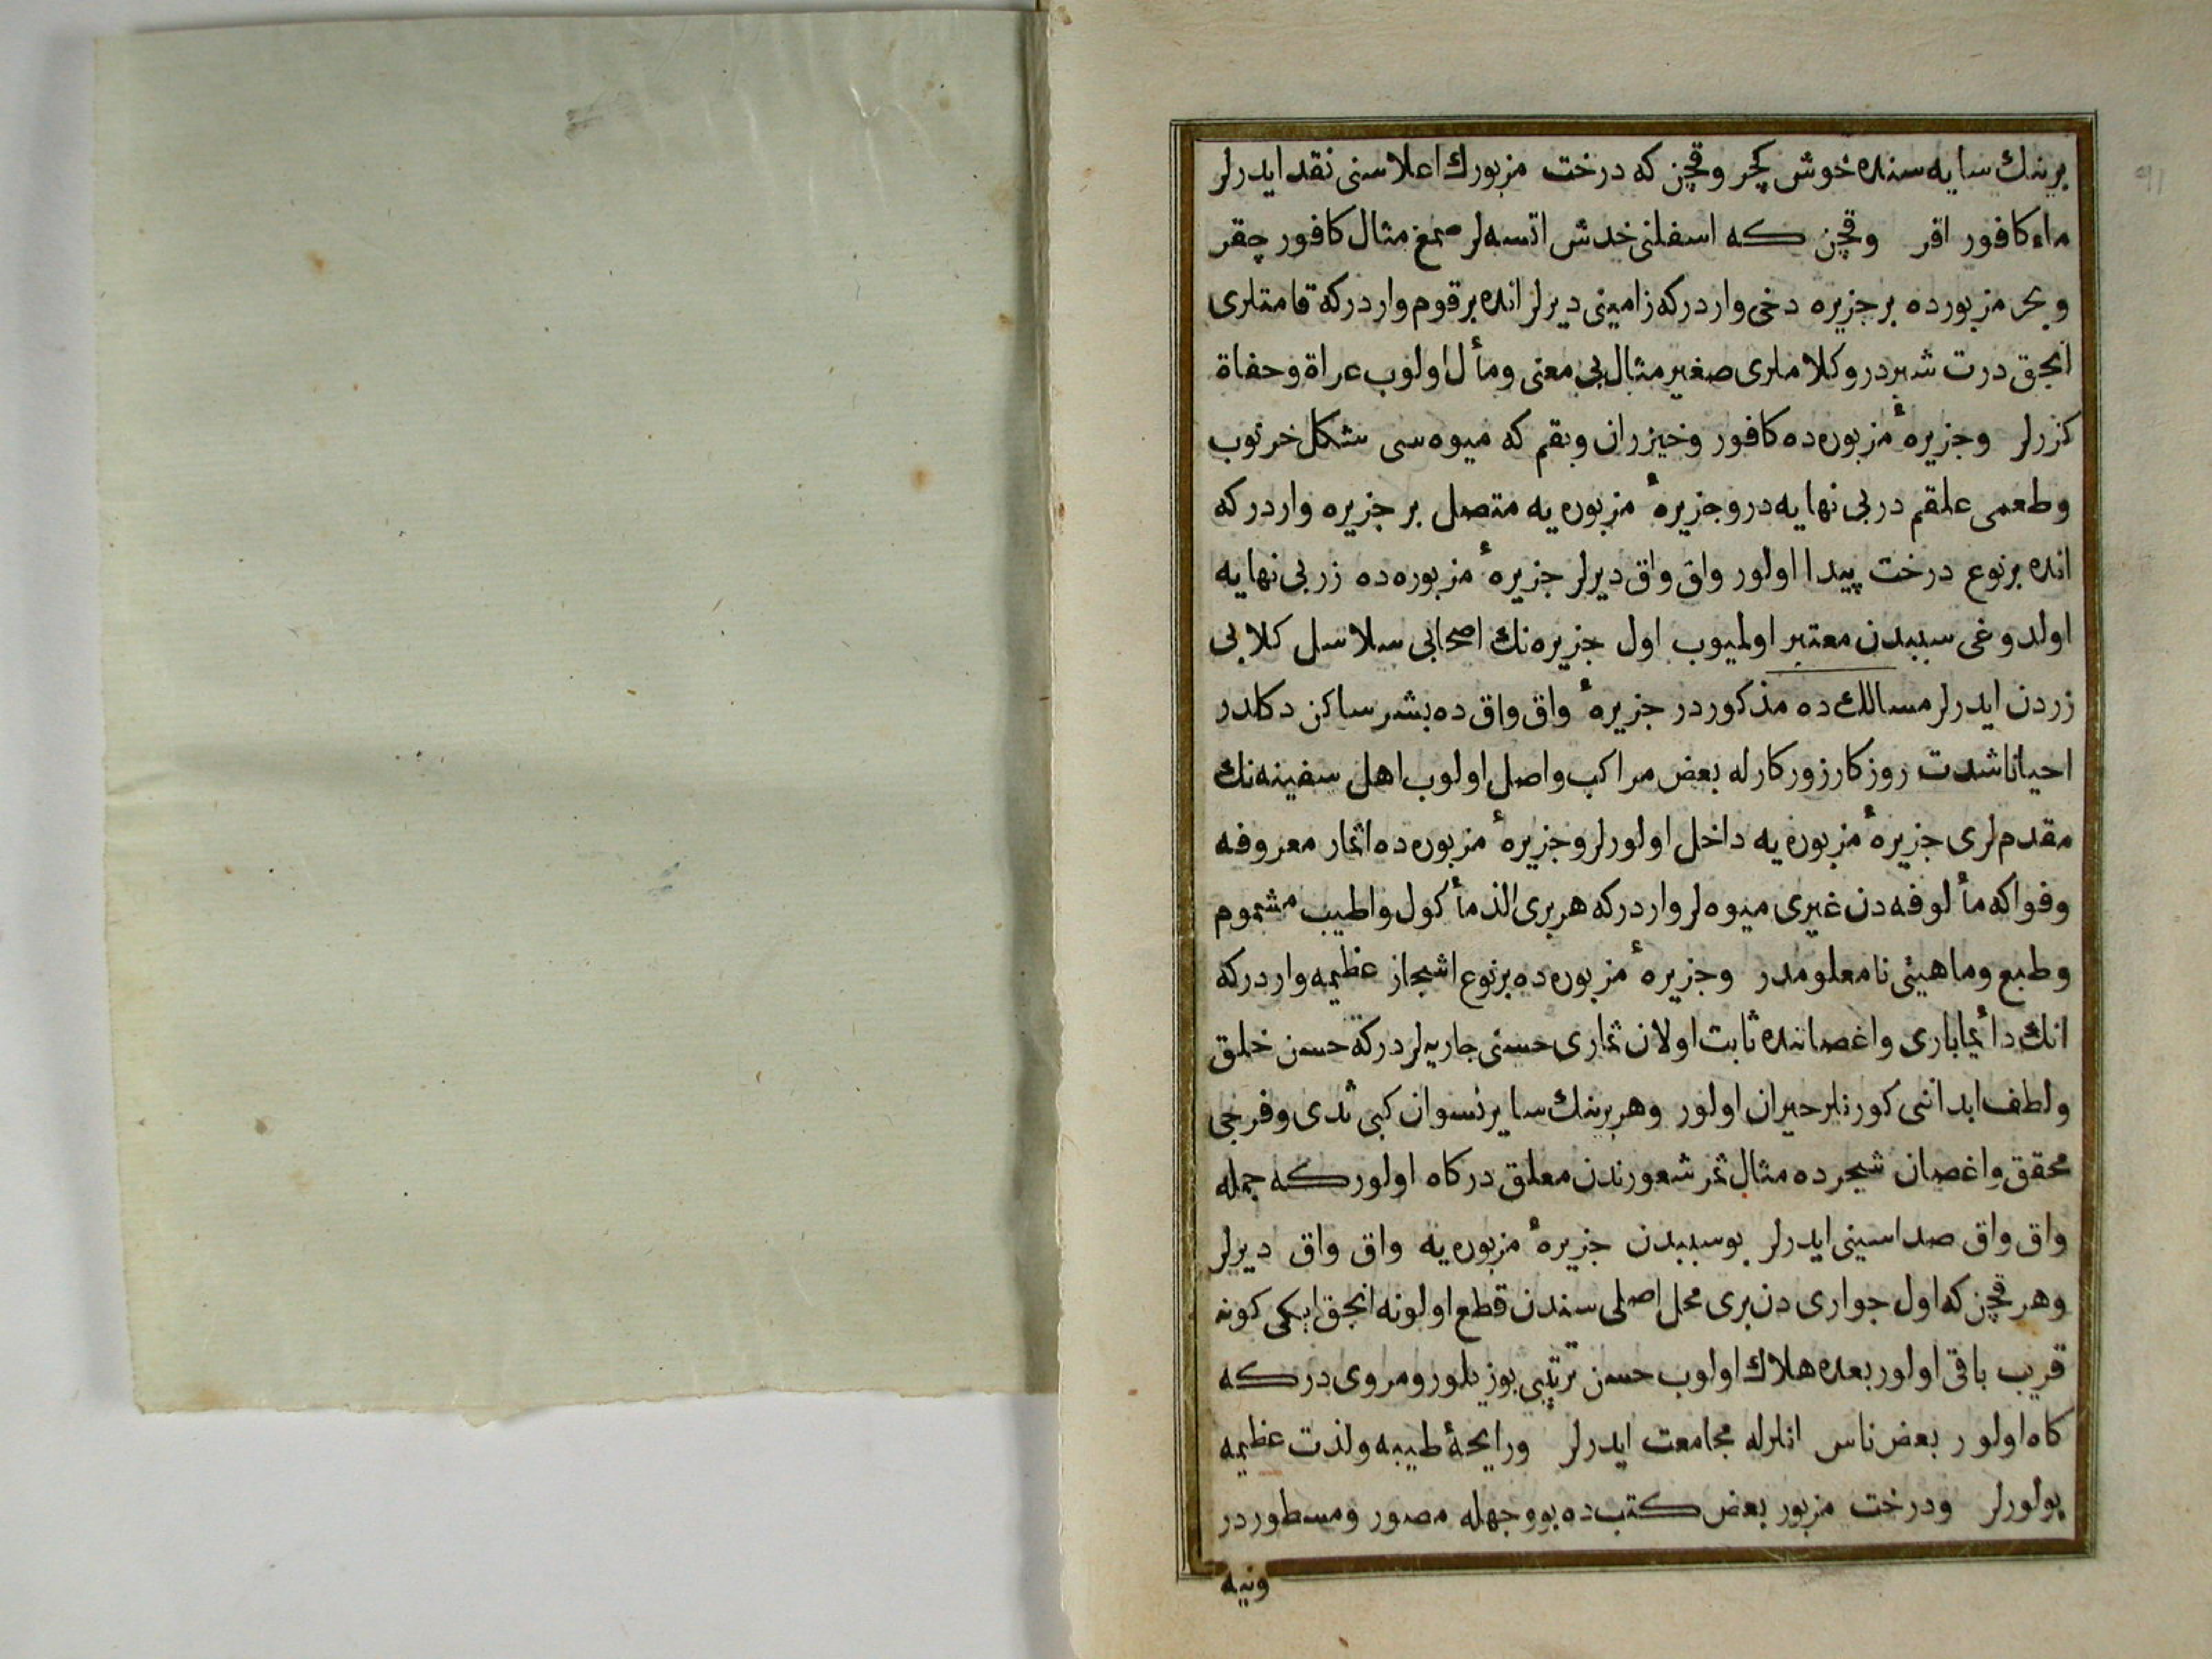 برينك سايه سنده خوش كچر وقچن كه درخت مزبورك اعلاسنى نقد ايدرلر
ماء كافور اقر وقچن كه اسفلنى خدش اتسه لر صمغ مثال كافور چقر
و بحر مزبورده بر جزيره دخى واردركه زامينى ديرلر انده بر قوم واردركه قامتلرى
انجق درت شبردر وكلاملرى صغير مثال بى معنى ومأل اولوب عراة وحفاة
كزرلر وجزيرهٔ مزبوره ده كافور وخيزران وبقم كه ميوه سى شكل خرنوب
وطعمى علقم در بى نهايه در وجزيرهٔ مزبوره يه متصل بر جزيره واردركه
انده بر نوع درخت پيدا اولور واق واق ديرلر جزيرهٔ مزبوره ده زر بى نهايه
اولدوغى سببدن معتبر اولميوب اول جزيره نك اصحابى سلاسل كلابى
زردن ايدرلر مسالك ده مذكوردر جزيرهٔ واق واق ده بشر ساكن دكلدر
احيانا شدت روزكار زوركارله بعض مراكب واصل اولوب اهل سفينه نك
مقدم لرى جزيرهٔ مزبوره يه داخل اولورلر وجزيرهٔ مزبوره ده اثمار معروفه
وفواكه مألوفه دن غيرى ميوه لر واردركه هر برى الذ مأكول واطيب مشموم
وطبع وماهيتى نامعلومدر وجزيرهٔ مزبوره ده بر نوع اشجار عظيمه واردركه
انك دائما بارى واغصاننده ثابت اولان ثمارى حسنى جاريه لردركه حسن خلق
ولطف ابداننى كورنلر حيران اولور وهر برينك ساير نسوان كبى ثدى وفرجى
محقق واغصان شجرده مثال ثمر شعورندن معلق در كاه اولور كه جمله
واق واق صداسينى ايدرلر بو سببدن جزيرهٔ مزبوره يه واق واق ديرلر
وهر قچن كه اول جوارى دن برى محل اصلى سندن قطع اولونه انجق ايكى كونه
قريب باقى اولور بعده هلاك اولوب حسن ترتيبى بوزيلور ومروى در كه
كاه اولور بعض ناس انلرله مجامعت ايدرلر ورايحهٔ طيبه ولذت عظيمه
بولورلر ودرخت مزبور بعض كتب ده بو وجهله مصور ومسطوردر
ونيه